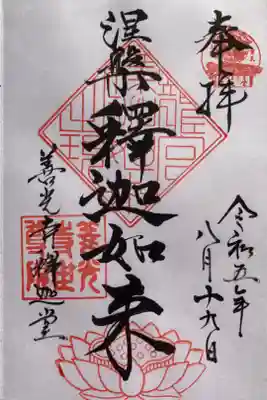 奉拝
令和五年
八月十九日
涅槃釋迦如来
善光寺釋迦堂